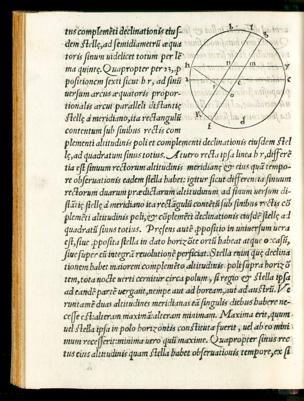 tus complemẽti declinationis eius-
dem stellę, ad semidiametrũ æqua
toris sinum videlicet totum per lẽ
ma quintę. Quapropter per 23, p
positionem sexti sicut b r, ad sinũ
versum arcus æquatoris propor-
tionalis arcui paralleli distantię
stellę à meridiano, ita rectangulũ
contentum sub sinibus rectis com
plementi altitudinis poli et complementi declinationis eiusdem stel
lę, ad quadratum sinus totius. At vero recta ipsa linea b r, differẽ
tia est sinuum rectorum altitudinis meridianę & eius quã tempo-
re observationis eadem stella habet: igitur sicut differẽtia sinuum
rectorum duarum prædictarum altitudinum ad sinum versum di-
stãtię stellę à meridiano ita rectãgulũ contẽtũ sub sinibus rectis cõ
plemẽti altitudinis poli, & cõplemẽti declinationis eiusdẽ stellę ad
quadratũ sinus totius. Præsens autẽ ppositio in universum vera
est, sive pposita stella in dato horizõte ortũ habeat atque occasũ,
sive super eũ integrã revolutionẽ perficiat. Stella enim quę declina
tionem habet maiorem complemẽto altitudinis poli supra horizõ
tem, tota nocte verti cernitur circa polum, si regio & stella ipsa
ad eandẽ partẽ vergant, nempe aut ad boream, aut ad austrũ. Ve
runtamẽ duas altitudines meridianas eã singulis diebus habere ne-
cesse est alteram maximã alteram minimam. Maxima erit, quum
vel stella ipsa in polo horizõtis constituta fuerit, vel ab eo mini
mum recesserit: minima vero quũ maxime. Quapropter sinus rec-
tus eius altitudinis quam stella habet observationis tempore, ex si